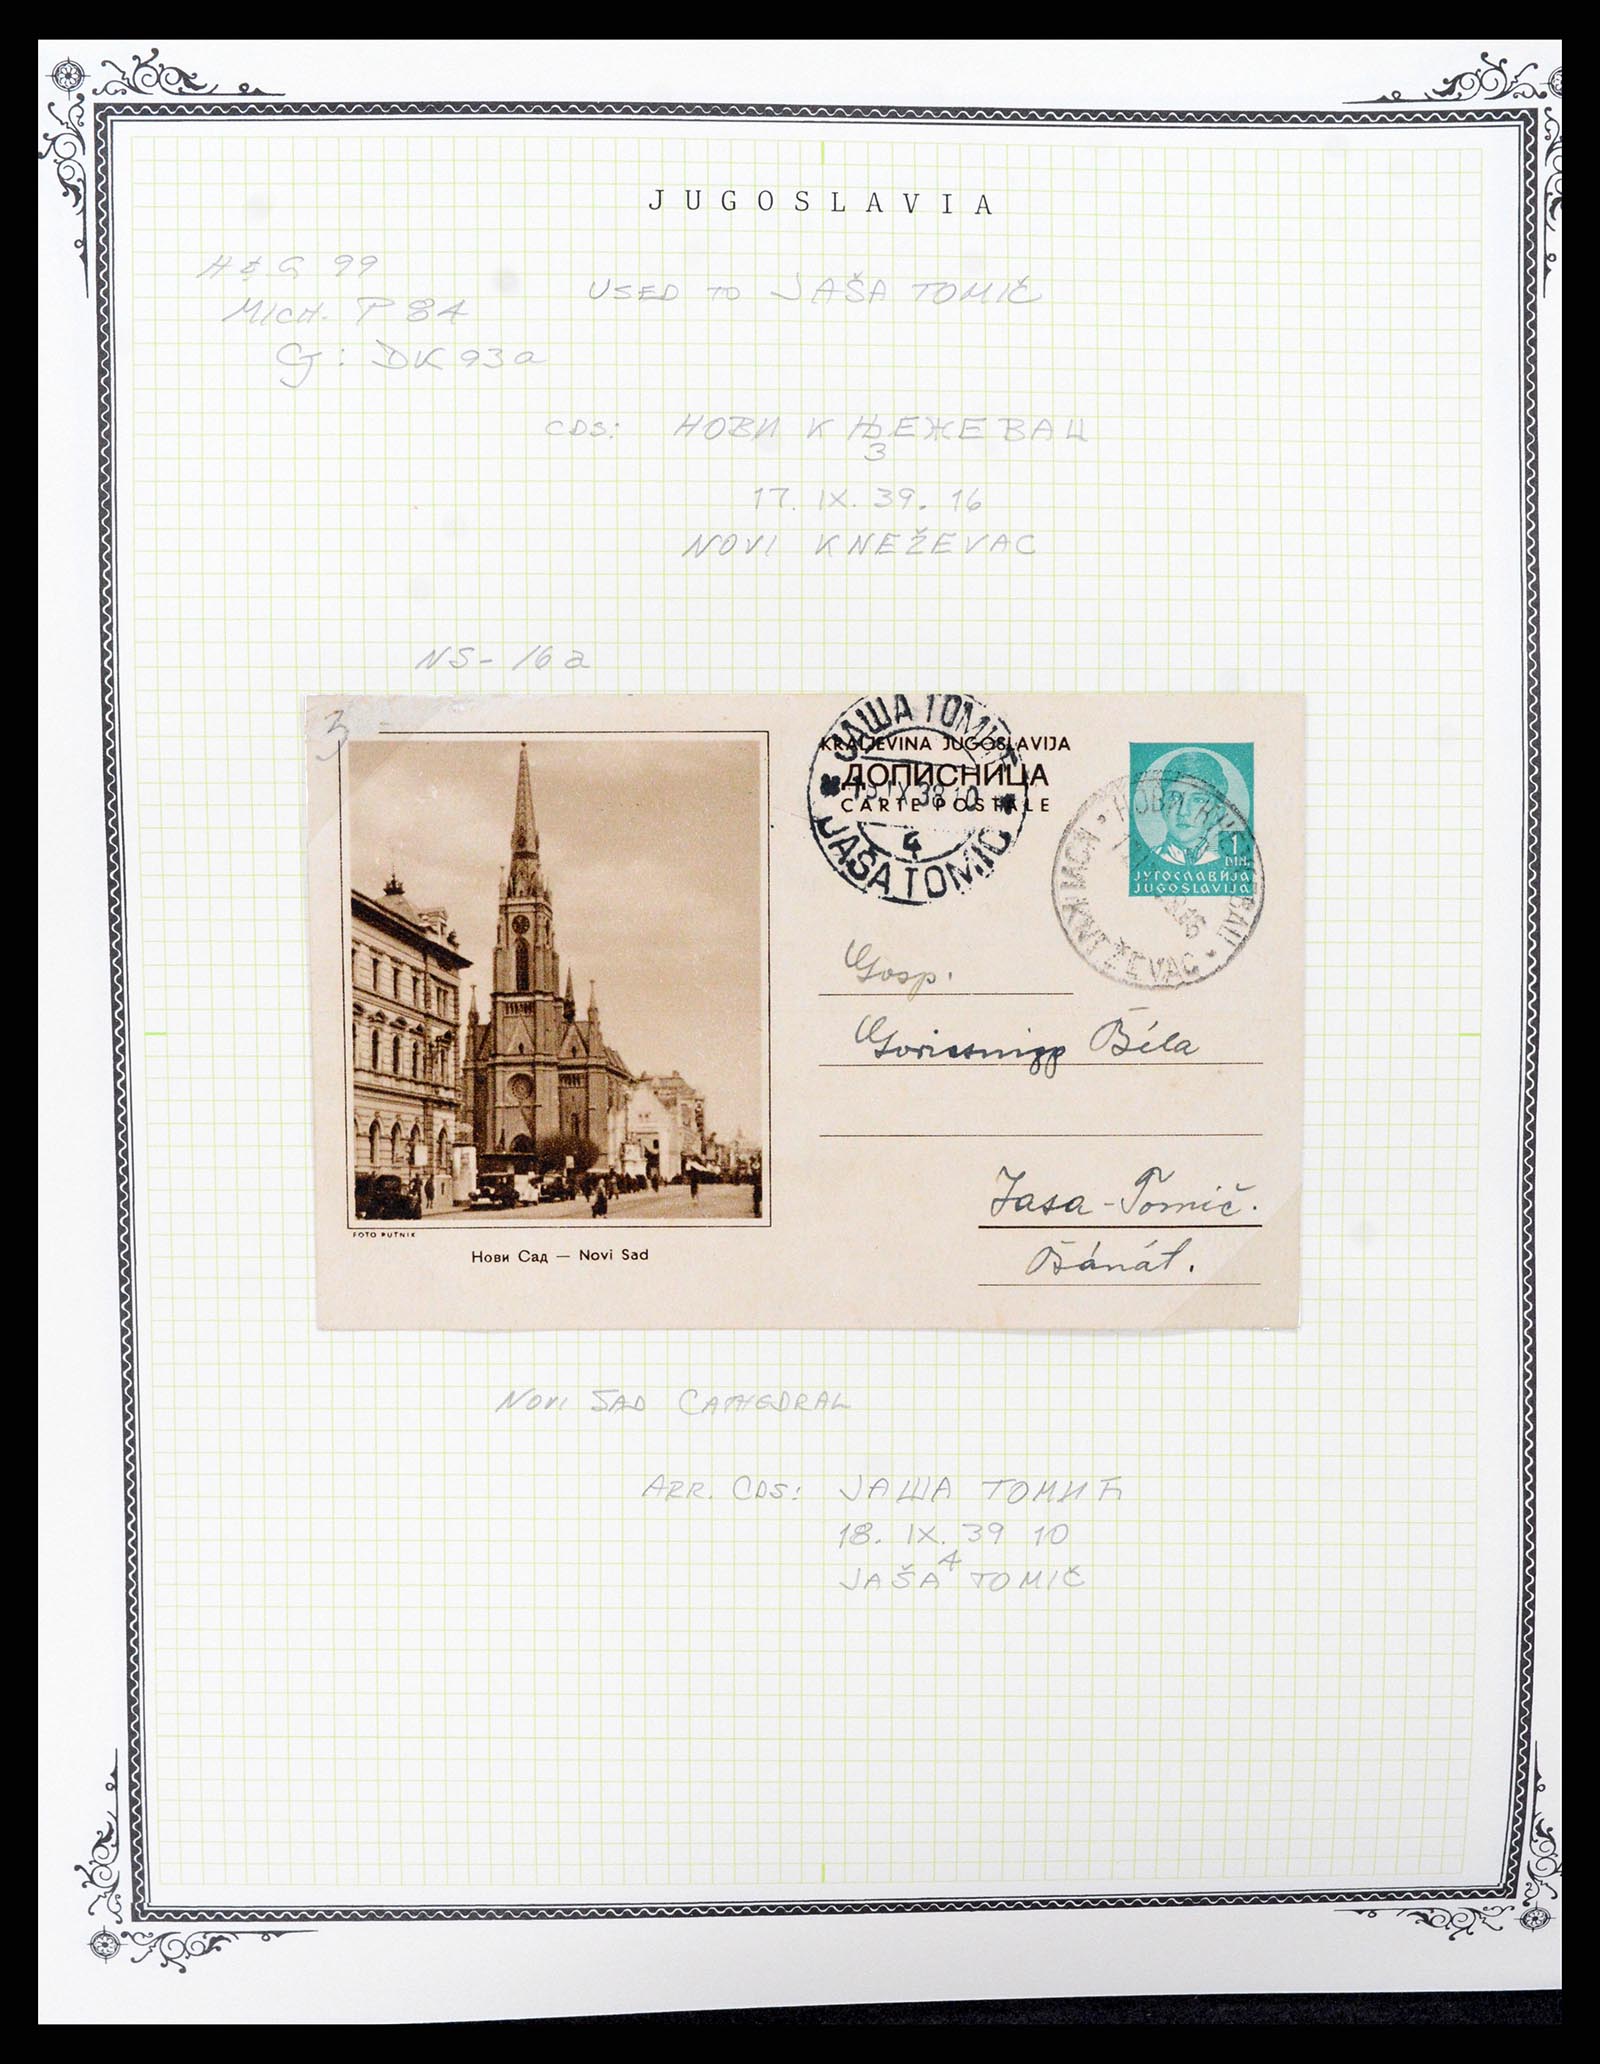 JUGOSLAVIA
H & G 99
MICH. P 84
G: DK 93a
USED TO JAŠA TOMIČ
CDS: НОВИ КЊЕЖЕВАЦ
3
17. IX. 39. 16
NOVI KNEŽEVAC
NS - 16a
3
ЈАША ТОМИЋ
IX 38 10
4
JAŠA TOMIĆ
KRALJEVINA JUGOSLAVIJA
ДОПИСНИЦА
CARTE POSTALE
1
DIN.
ЈУГОСЛАВИЈА
JUGOSLAVIJA
KNEŽEVAC
Gosp.
Béla
Jasa-Tomič.
Bánát.
FOTO PUTNIK
Нови Сад — Novi Sad
NOVI SAD CATHEDRAL
ARR. CDS: ЈАША ТОМИЋ
18. IX. 39 10
4
JAŠA TOMIČ